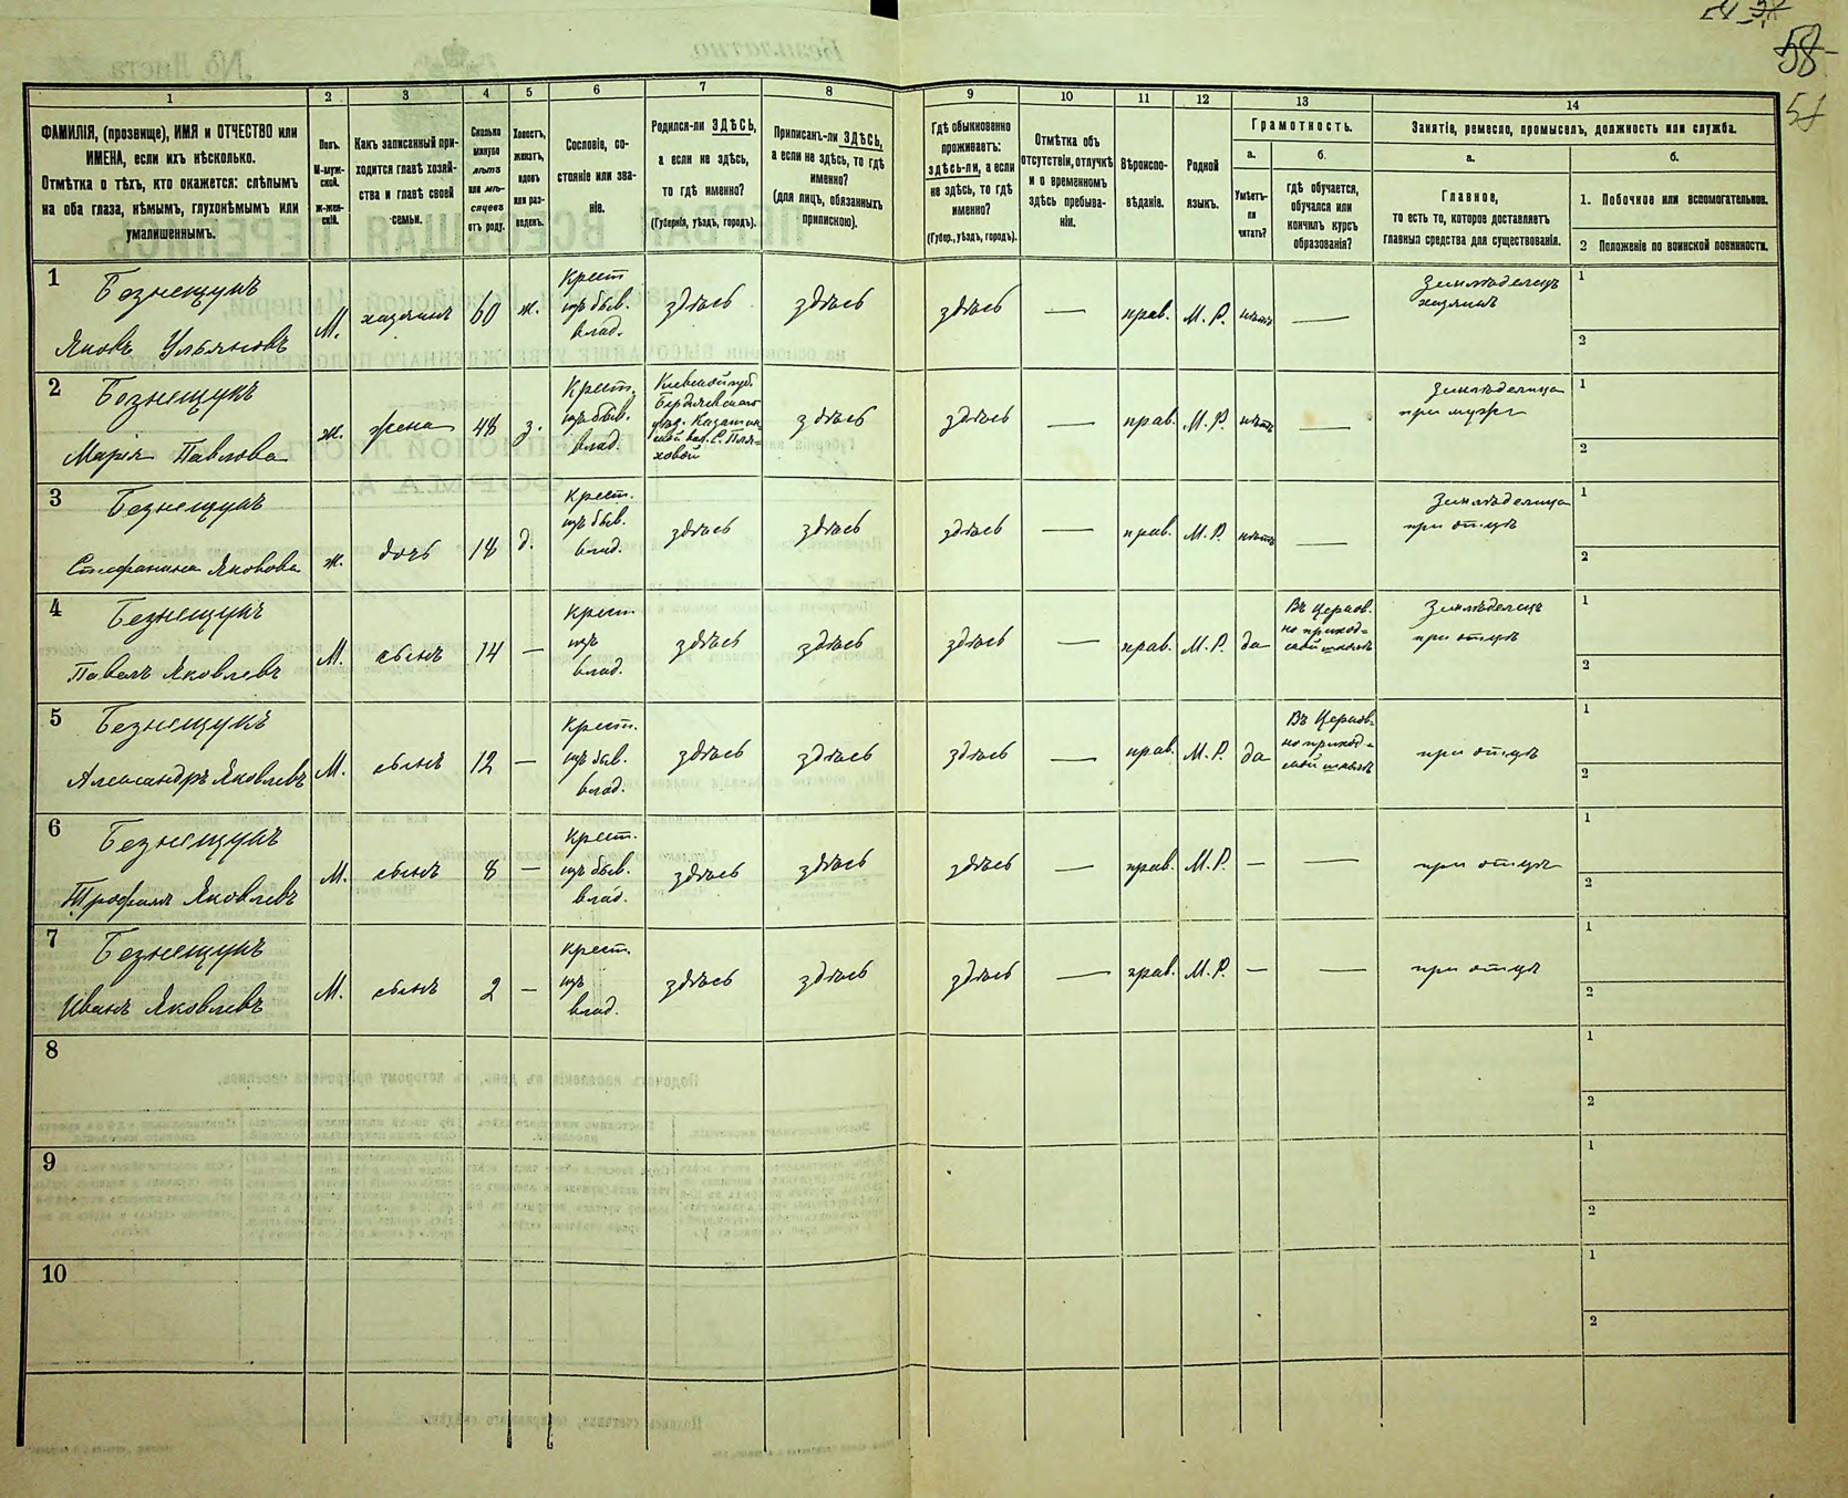 58
1
2
3
4
5
6
7
8
9
10
11
12
13
14
ФАМИЛІЯ, (прозвище), ИМЯ и ОТЧЕСТВО или
ИМЕНА, если ихъ нѣсколько.
Отмѣтка о тѣхъ, кто окажется: слѣпымъ
на оба глаза, нѣмымъ, глухонѣмымъ или
умалишеннымъ.
Полъ.
М-муж-
ской.
ж-жен-
скій.
Какъ записанный при-
ходится главѣ хозяй-
ства и главѣ своей
семьи.
Сколько
минуло
лѣтъ
или мѣ-
сяцевъ
отъ роду.
Холостъ,
женатъ,
вдовъ
или раз-
веденъ.
Сословіе, со-
стояніе или зва-
ніе.
Родился-ли ЗДѢСЬ,
а если не здѣсь,
то гдѣ именно?
(Губернія, уѣздъ, городъ).
Приписанъ-ли ЗДѢСЬ,
а если не здѣсь, то гдѣ
именно?
(для лицъ, обязанныхъ
припискою).
Гдѣ обыкновенно
проживаетъ:
здѣсь-ли, а если
не здѣсь, то гдѣ
именно?
(Губер., уѣздъ, городъ).
Отмѣтка объ
отсутствіи, отлучкѣ
и о временномъ
здѣсь пребыва-
ніи.
Вѣроиспо-
вѣданіе.
Родной
языкъ.
Грамотность.
а.
Умѣетъ-
ли
читать?
б.
гдѣ обучается,
обучался или
кончилъ курсъ
образованія?
Занятіе, ремесло, промыселъ, должность или служба.
а.
Главное,
то есть то, которое доставляетъ
главныя средства для существованія.
б.
1. Побочное или вспомогательное.
2 Положеніе по воинской повинности.
1
Безнещукъ
Яковъ Ульяновъ
М.
хазяинъ
60
ж.
Крест
изъ быв.
влад.
здѣсь
здѣсь
здѣсь
—
прав.
М. Р.
нѣтъ
—
Земледѣлецъ
хазяинъ
1
2
2
Безнещукъ
Марія Павлова
ж.
жена
48
з.
Крест.
изъ быв.
влад.
Кіевской губ.
Бердичевскаго
уѣзд. Казатин-
ской вол. С.
здѣсь
здѣсь
—
прав.
М. Р.
нѣтъ
—
Земледѣлица
при мужѣ
1
2
3
Безнещукъ
Стефанина Яковова
ж.
дочь
18
д.
Крест.
изъ быв.
влад.
здѣсь
здѣсь
здѣсь
—
прав.
М. Р.
нѣтъ
—
Земледѣлица
при отцѣ
1
2
4
Безнещукъ
Павелъ Яковлевъ
М.
сынъ
14
—
Крест
изъ
влад.
здѣсь
здѣсь
здѣсь
—
прав.
М. Р.
да
Въ церков-
но приход-
ской школѣ
Земледѣлецъ
при отцѣ
1
2
5
Безнещукъ
Александръ Яковлевъ
М.
сынъ
12
—
Крест.
изъ быв.
влад.
здѣсь
здѣсь
здѣсь
—
прав.
М. Р.
да
Въ Церков-
но приход-
ской школѣ
при отцѣ
1
2
6
Безнещукъ
Трофимъ Яковлевъ
М.
сынъ
8
—
Крест.
изъ быв.
влад.
здѣсь
здѣсь
здѣсь
—
прав.
М. Р.
—
—
при отцѣ
1
2
7
Безнещукъ
Иванъ Яковлевъ
М.
сынъ
2
—
Крест.
изъ
влад.
здѣсь
здѣсь
здѣсь
—
прав.
М. Р.
—
—
при отцѣ
1
2
8
1
2
9
1
2
10
1
2